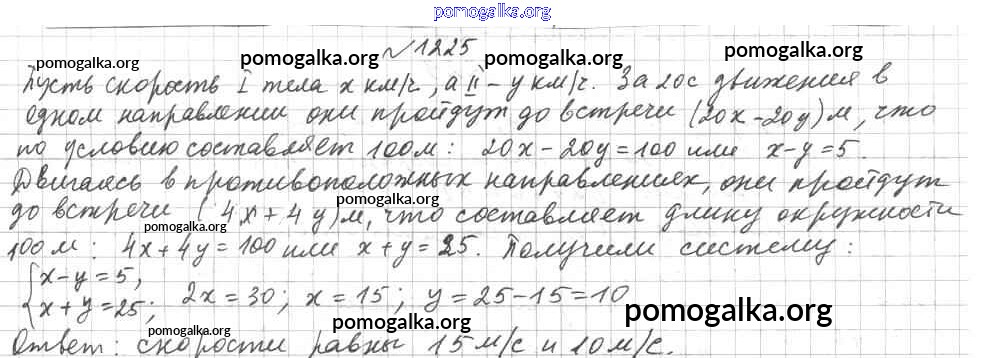 pomogalka.org
№1225
pomogalka.org pomogalka.org pomogalka.org pomogalka.org
Пусть скорость I тела x км/ч, а II – y км/ч. За 20с движения в
одном направлении они пройдут до встречи (20x-20y)м, что
по условию составляет 100м: 20x-20y=100 или x-y=5.
pomogalka.org pomogalka.org pomogalka.org
Двигаясь в противоположных направлениях, они пройдут
pomogalka.org
до встречи (4x+4y)м, что составляет длину окружности
100м: 4x+4y=100 или x+y=25. Получили систему:
pomogalka.org pomogalka.org pomogalka.org
{x-y=5,
x+y=25; 2x=30; x=15; y=25-15=10
pomogalka.org pomogalka.org pomogalka.org
Ответ: скорости равны 15м/с и 10м/с.